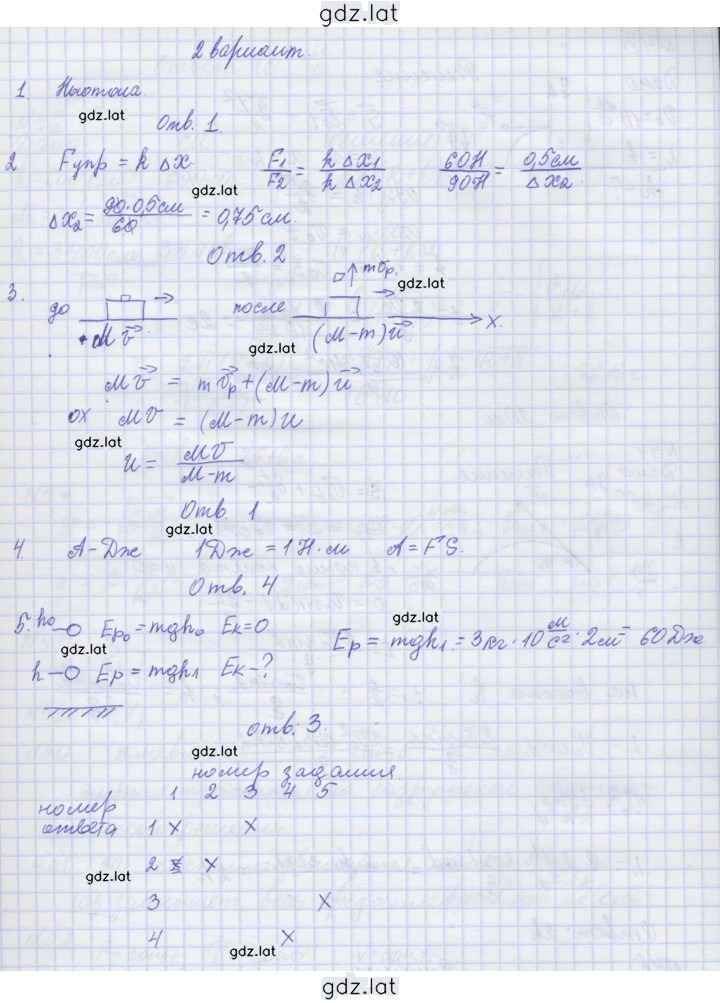 gdz.lat
2 вариант.
1. Ньютона.
gdz.lat
Отв. 1.
2 Fупр = k Δx F1/F2 = k Δx1/k Δx2 60Н/90Н = 0,5см/Δx2
gdz.lat
Δx2 = 90·0,5см/60 = 0,75 см.
Отв. 2
3. до после m v⃗р.
gdz.lat
M v⃗ (M-m) u⃗ x.
gdz.lat
M v⃗ = m v⃗р + (M-m) u⃗
ох Mv = (M-m) u
gdz.lat
u = Mv/M-m
Отв. 1
gdz.lat
4. A-Дж 1Дж = 1Н·м A = FS.
Отв. 4
5. h0 Ep0 = mgh0 Eк=0 Ep = mgh1 = 3кг·10 м/с2·2м= 60Дж
gdz.lat
gdz.lat
h Ep = mgh1 Eк-?
отв. 3.
gdz.lat
номер задания
1 2 3 4 5
номер
ответа 1 x x
2 x x
gdz.lat
3 x
4 x
gdz.lat
gdz.lat